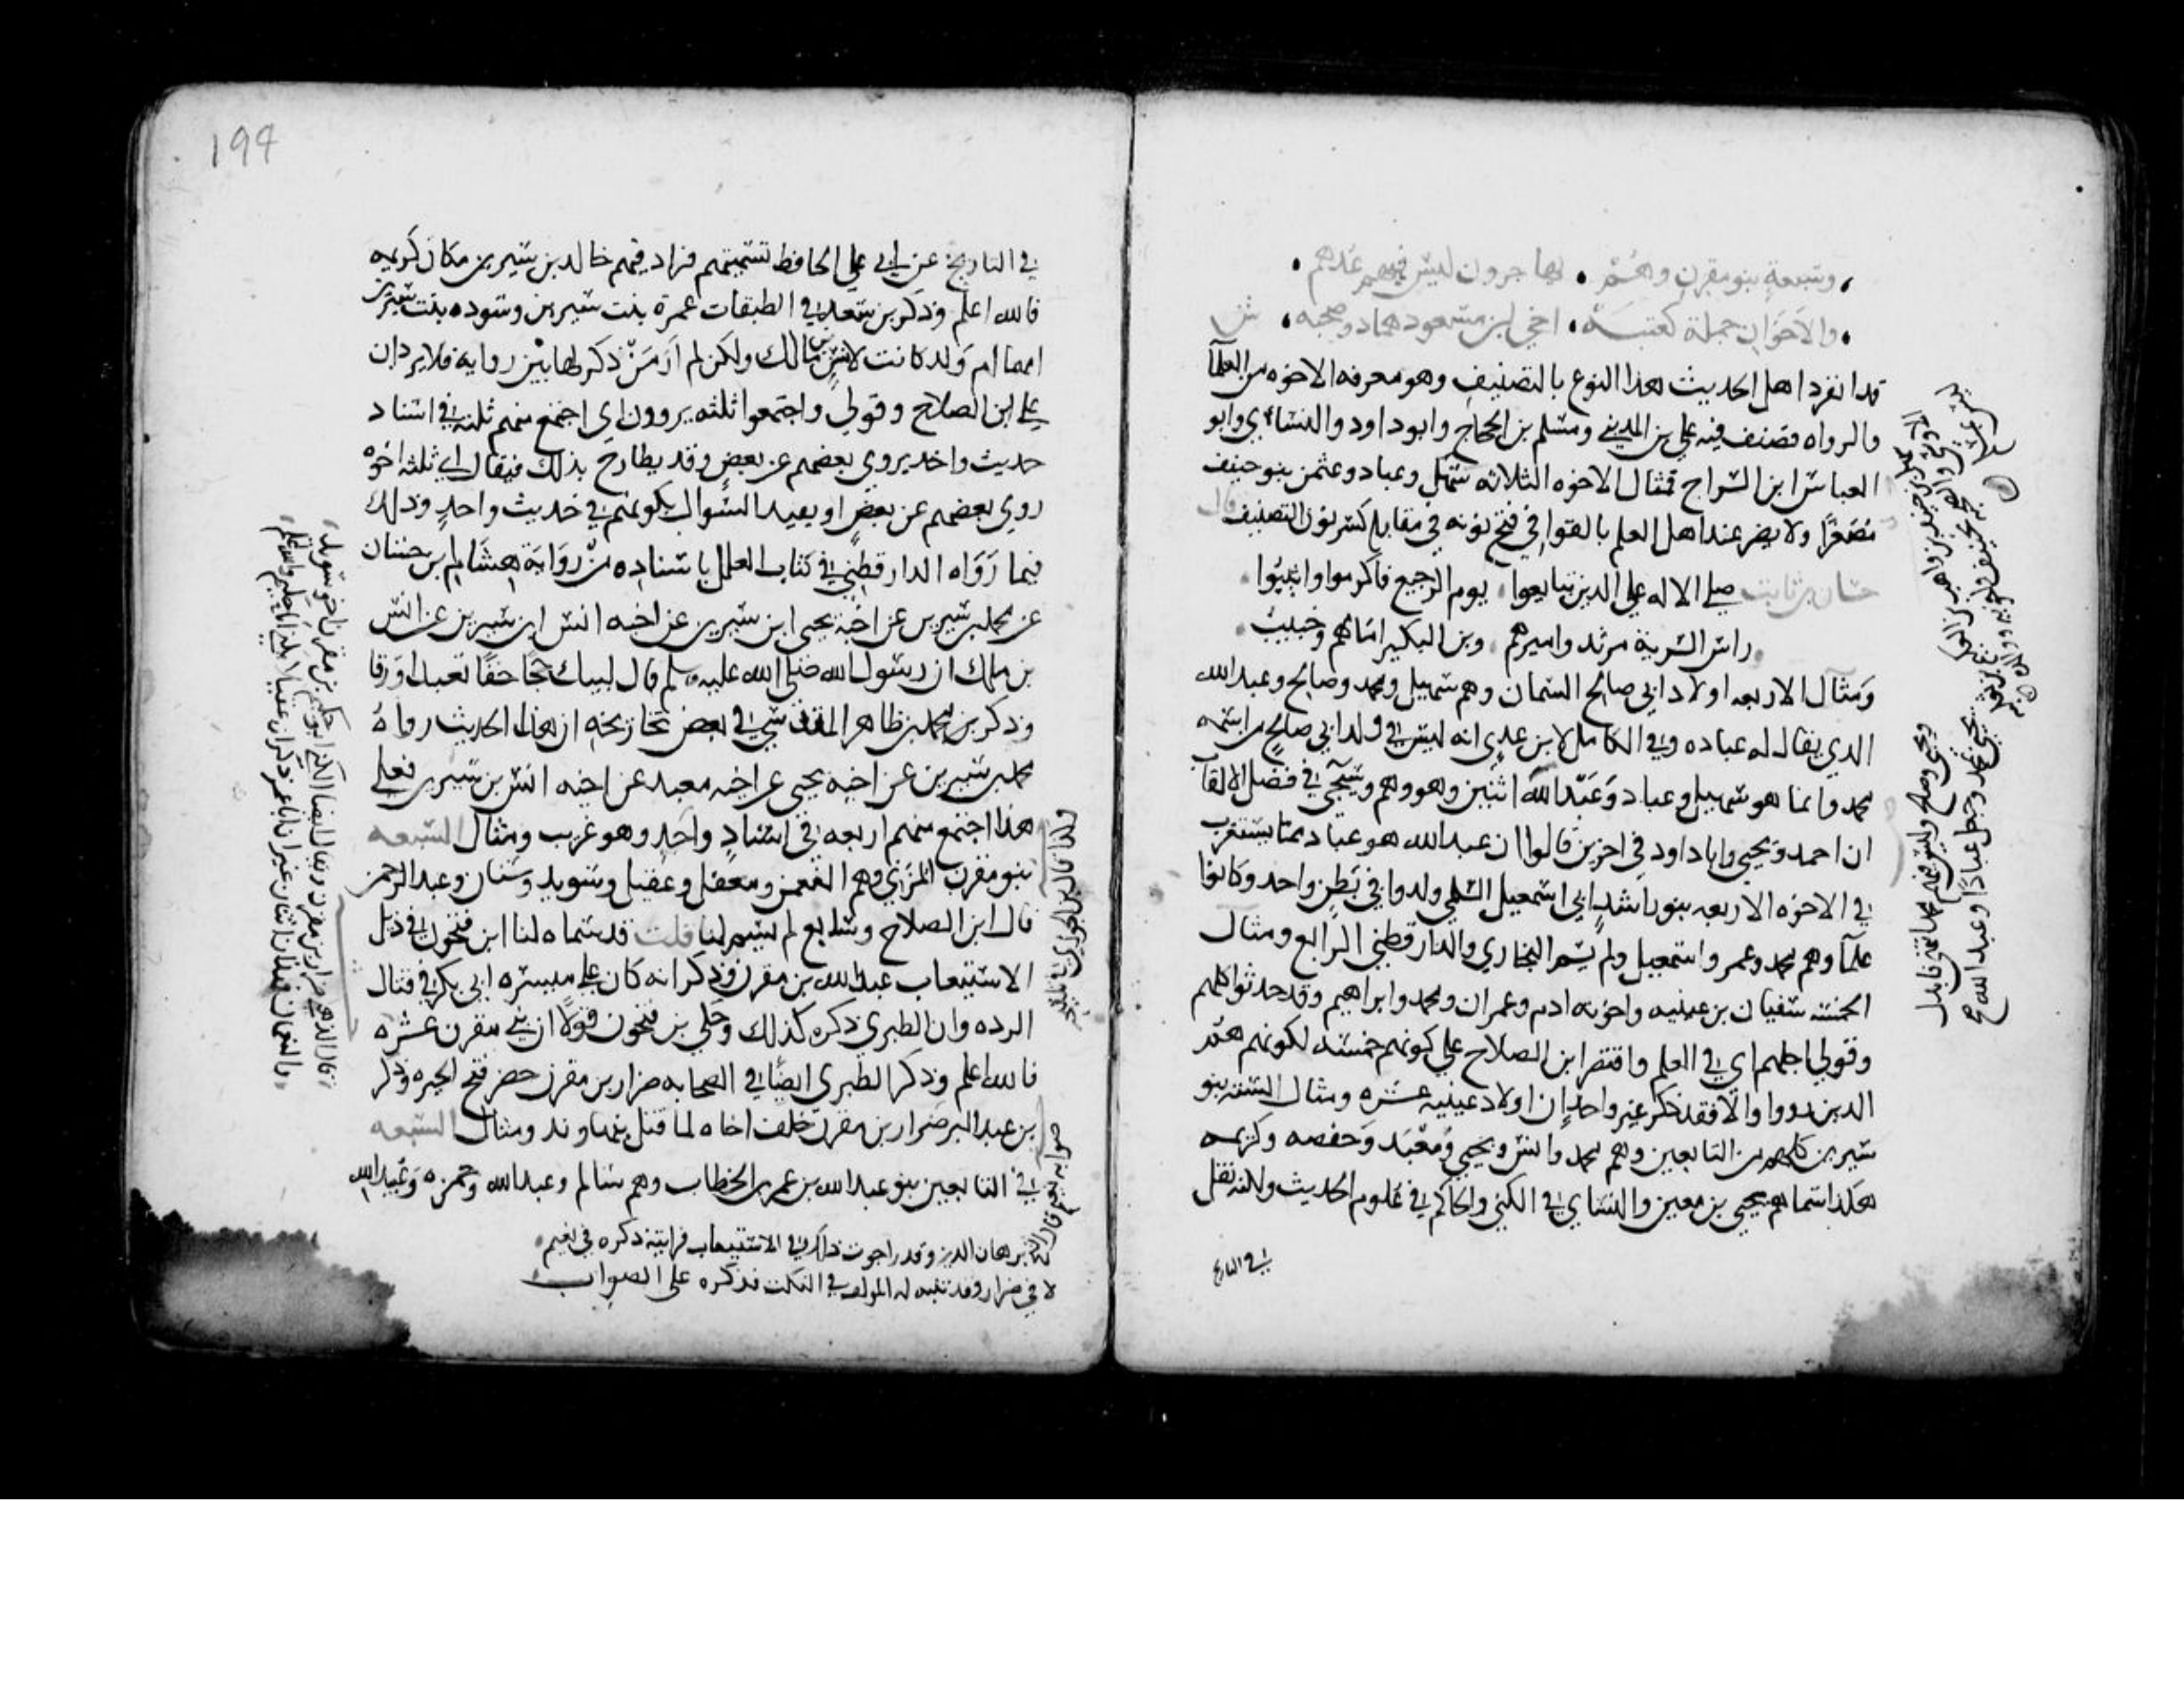 وسبعة بنو مقرن وهم • مهاجرون ليس فيهم عدهم •
والاخوان جملة كعتبة • اخي ابن مسعود هما ذو صحبه • ش
قد افرد اهل الحديث هذا النوع بالتصنيف وهو معرفه الاخوه من العلما
والرواه فصنف فيه علي بن المديني ومسلم بن الحجاج وابو داود والنسائي وابو
العباس ابن السراج فمثال الاخوه الثلاثه سهل وعباد وعثمن بنو حنيف
مصغرا ولا يضر عند اهل العلم بالقوافي فتح نونه في مقابله كسر نون التصنيف قال
حسان بن ثابت صلى الاله على الذين تتابعوا • يوم الرجيع فاكرموا واثيبوا •
راس السرية مرثد واميرهم • وبن البكير امامهم وخبيب •
ومثال الاربعه اولاد ابي صالح السمان وهم سهيل ومحمد وصالح وعبد الله
الذي يقال له عباده وفي الكامل لابن عدي انه ليس في ولد ابي صالح من اسمه
محمد وانما هو سهيل وعباد وعبد الله اثنين وهو وهم وسيجي في فصل الالقاب
ان احمد ويحيى وابا داود في اخرين قالوا ان عبد الله هو عباد ممّا يستغرب
في الاخوه الاربعه بنو راشد ابي اسمعيل السلمي ولدوا في بطن واحد وكانوا
علما وهم محمد وعمر واسمعيل ولم يسم البخاري والدارقطني الرابع ومثال
الخمسه سفيان بن عيينه واخوته ادم وعمران ومحمد وابراهيم وقد حدثوا كلهم
وقولي اجلهم اي في العلم واقتصر ابن الصلاح على كونهم خمسه لكونهم هم
الذين رووا والا فقد ذكر غير واحد ان اولاد عيينه عشره ومثال السته بنو
سيرين كلهم من التابعين وهم محمد وانس ويحيى ومعبد وحفصه وكريمه
هكذا سماهم يحيى بن معين والنساي في الكنى والحاكم في علوم الحديث ولكنه نقل
في التاريخ
في التاريخ عن ابي علي الحافظ تسميتهم فزاد فيهم خالد بن سيرين مكان كريمه
فالله اعلم وذكر بن سعد في الطبقات عمرة بنت سيرين وسوده بنت سيرين
امهما ام ولد كانت لانس بن مالك ولكن لم ار من ذكر لهاتين روايه فلا يردان
على ابن الصلاح وقولي واجتمعوا ثلثه يروون اي اجتمع منهم ثلثه في اسناد
حديث واحد يروي بعضهم عن بعض وقد يطارح بذلك فيقال اي ثلثه اخوه
روى بعضهم عن بعض او يقيد السوال بكونهم في حديث واحد وذلك
فيما رواه الدارقطني في كتاب العلل باسناده من رواية هشام بن حسان
عن محمد بن سيرين عن اخيه يحيى ابن سيرين عن اخيه انس ابن سيرين عن انس
بن ملك ان رسول الله صلى الله عليه وسلم قال لبيك حجا حقا تعبدا ورقا
وذكر بن محمد بن طاهر المقدسي في بعض تخاريجه ان هذا الحديث رواه
محمد بن سيرين عن اخيه يحيى عن اخيه معبد عن اخيه انس بن سيرين فعلى
هذا اجتمع منهم اربعه في اسناد واحد وهو غريب ومثال السبعه
بنو مقرن المزني وهم النعمن ومعقل وعقيل وسويد وسنان وعبد الرحمن
قال ابن الصلاح وسابع لم يسم لنا قلت قد سماه لنا ابن فتحون في ذيل
الاستيعاب عبد الله بن مقرن وذكر انه كان على ميسره ابي بكر في قتال
الرده وان الطبري ذكره كذلك وحكى بن فتحون قولا ان بني مقرن عشره
فالله اعلم وذكر الطبري ايضا في الصحابه ضرار بن مقرن حضر فتح الحيره وذكر
بن عبد البر ضرار بن مقرن خلف اخاه لما قتل بنهاوند ومثال السبعه
في التابعين بنو عبد الله بن عمر بن الخطاب وهم سالم وعبد الله وحمزه وعبيد الله
برهان الدين وقد راجعت ذلك في الاستيعاب فرايته ذكره في نعيم
لا في ضرار وقد تنبه له المولف في النكت فذكره على الصواب
199